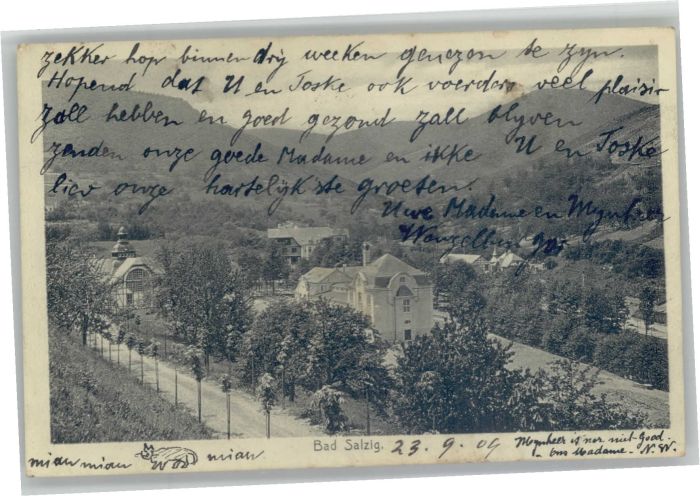 zekker hop binnen dry weeken genezen te zyn.
Hopend dat U en Toske ook voerders veel plaisir
zall hebben en goed gezond zall blyven
zenden onze goede Madame en ikke U en Toske
liev onze hartelijkste groeten.
Uwe Madame en Mynheer
Bad Salzig. 23. 9. 09
Mynheer is nor niet Good.
Madame. N.W.
miau miau miau